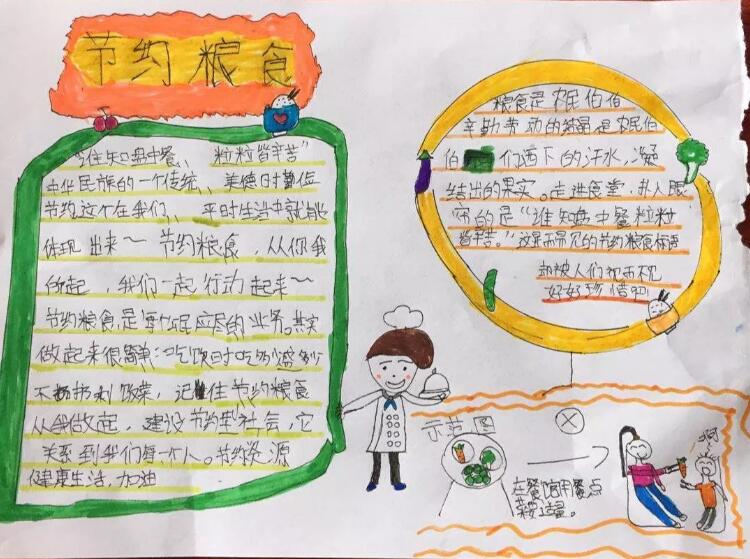 节约粮食
"谁知盘中餐、粒粒皆辛苦"
中华民族的一个传统、美德时勤俭
节约这个在我们、平时生活中就能
体现出来～节约粮食，从你我
做起，我们一起行动起来～～
节约粮食,是每个公民应尽的业务。其实
做起来很简单:吃饭时吃多少盛多少
不扔剩饭菜，记住节约粮食
从我做起，建设节约型社会，它
关系到我们每一个人。节约资源
健康生活、加油
粮食是农民伯伯
辛勤劳动的结晶是农民伯
伯们洒下的汗水,凝
结出的果实。走进食堂，扑入眼
帘的是"谁知盘中餐粒粒
皆辛苦。"这是常见的节约粮食标语
却被人们视而不见
好好珍惜吧!
示范图
在餐馆用餐点
菜适量。
啊